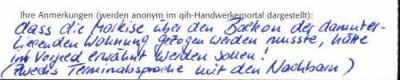 Ihre Anmerkungen (werden anonym im qih-Handwerkerportal dargestellt):
dass die Markise über den Balkon der darunter-
liegenden Wohnung gezogen werden musste, hätte
im Vorfeld erwähnt werden sollen!
(zwecks Terminabsprache mit den Nachbarn)